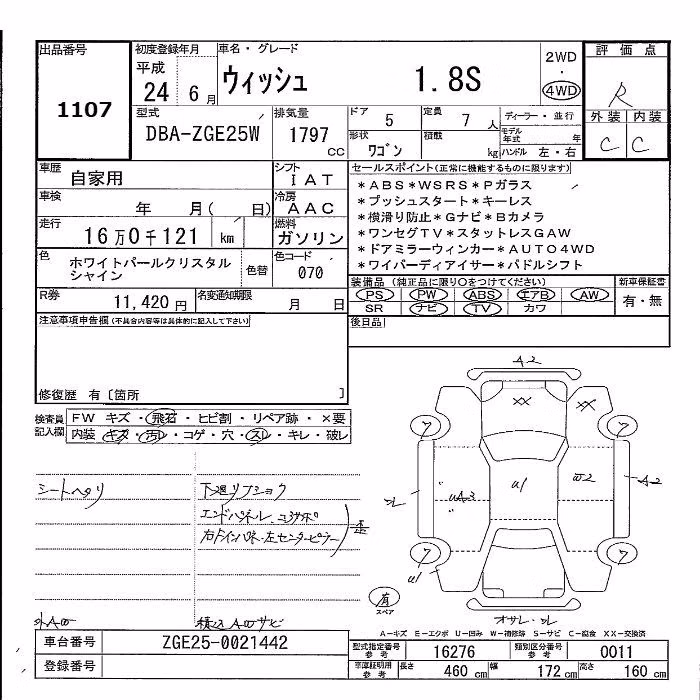 出品番号
1107
初度登録年月
平成
24 6月
車名・グレード
ウィッシュ 1.8S
2WD
・
4WD
評価点
R
外装 内装
C C
型式
DBA-ZGE25W
排気量
1797
cc
ドア
5
定員
7 人
ディーラー・並行
モデル年式 年
形状
ワゴン
積載
kg
ハンドル 左・右
車歴
自家用
シフト
IAT
車検
年 月( 日)
冷房
AAC
走行
16万0千121 km
燃料
ガソリン
色
ホワイトパールクリスタル
シャイン
色替
色コード
070
R券
11,420 円
名変通知期限
月 日
セールスポイント(正常に機能するものに限ります)
*ABS*WSRS*Pガラス
*プッシュスタート*キーレス
*横滑り防止*Gナビ*Bカメラ
*ワンセグTV*スタットレスGAW
*ドアミラーウィンカー*AUTO4WD
*ワイパーディアイサー*パドルシフト
装備品(純正品に限り○をつけてください)
PS PW ABS エアB AW
SR ナビ TV カワ
新車保証書
有・無
注意事項申告欄(不具合内容等は具体的に記入して下さい)
後日品
修復歴 有〔箇所 〕
検査員記入欄
FW キズ・飛石・ヒビ割・リペア跡・×要
内装 キズ・汚レ・コゲ・穴・スレ・キレ・破レ
シートヘタリ
下廻リフショク
エンドパネル・コアサポ
右ドインパネ・左センターピラー
歪
外AW
積込AWサビ
A2
XX
XX
ア
ア
U1
W2
UA3
A2
ア
ア
U1
有
スペア
オサレ・ズレ
A-キズ E-エクボ U-凹み W-補修跡 S-サビ C-腐食 XX-交換済
車台番号
ZGE25-0021442
登録番号
型式指定番号
参考
16276
類別区分番号
参考
0011
車庫証明用
参考
長さ
460 cm
幅
172 cm
高さ
160 cm